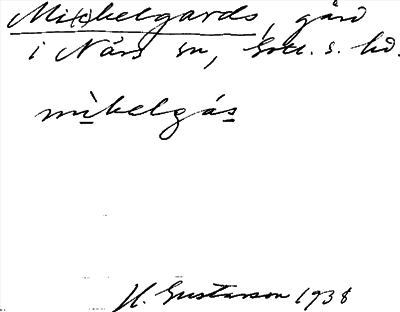 Mi(c)kelgards, gård
i Närs sn, Gotl. s. hd.
mìkelgás
H. Gustavson 1938